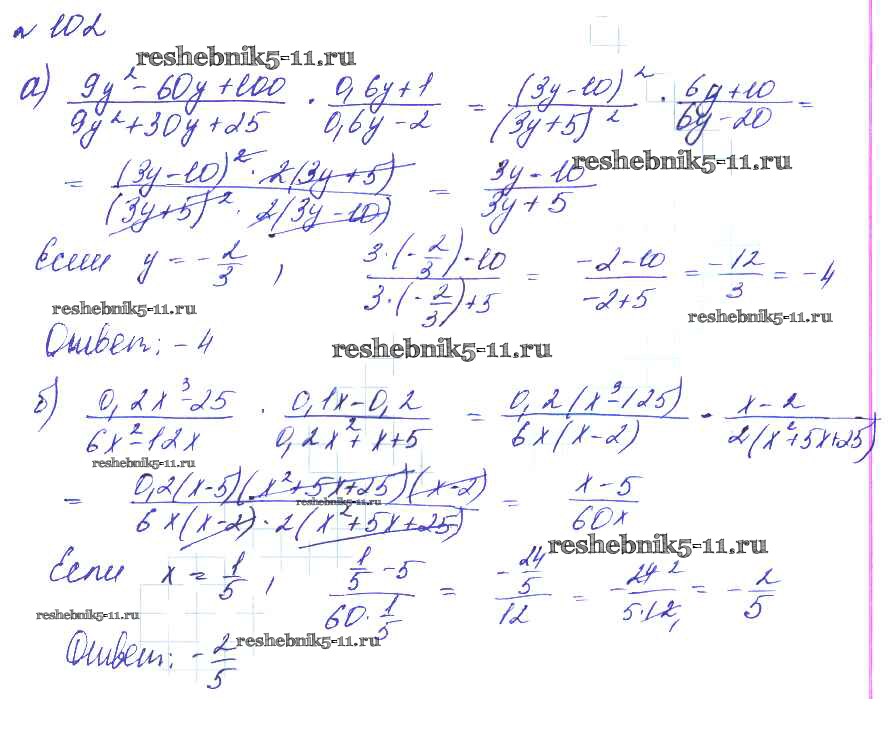 № 102
reshebnik5-11.ru
а) (9y² - 60y + 100)/(9y² + 30y + 25) · (0,6y + 1)/(0,6y - 2) = (3y - 10)²/(3y + 5)² · (6y + 10)/(6y - 20) =
reshebnik5-11.ru
= ((3y - 10)² · 2(3y + 5))/((3y + 5)² · 2(3y - 10)) = (3y - 10)/(3y + 5)
Если y = -2/3, (3·(-2/3) - 10)/(3·(-2/3) + 5) = (-2 - 10)/(-2 + 5) = -12/3 = -4
reshebnik5-11.ru reshebnik5-11.ru
Ответ: -4 reshebnik5-11.ru
б) (0,2x³ - 25)/(6x² - 12x) · (0,1x - 0,2)/(0,2x² + x + 5) = 0,2(x³ - 125)/6x(x - 2) · (x - 2)/2(x² + 5x + 25)
reshebnik5-11.ru
= (0,2(x - 5)(x² + 5x + 25)(x - 2))/(6x(x - 2) · 2(x² + 5x + 25)) = (x - 5)/60x
reshebnik5-11.ru
reshebnik5-11.ru
Если x = 1/5, (1/5 - 5)/(60 · 1/5) = (-24/5)/12 = -24 2/5·12, = -2/5
reshebnik5-11.ru
Ответ: -2/5 reshebnik5-11.ru